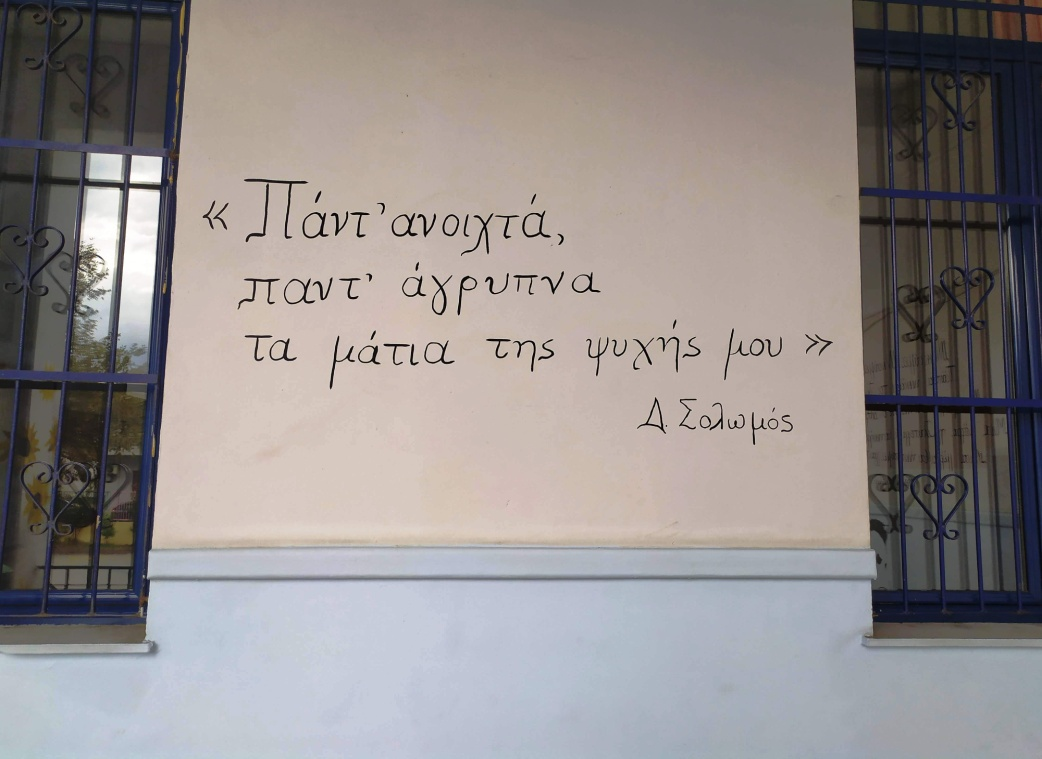 « Πάντ' ανοιχτά,
παντ' άγρυπνα
τα μάτια της ψυχής μου »
Δ. Σολωμός